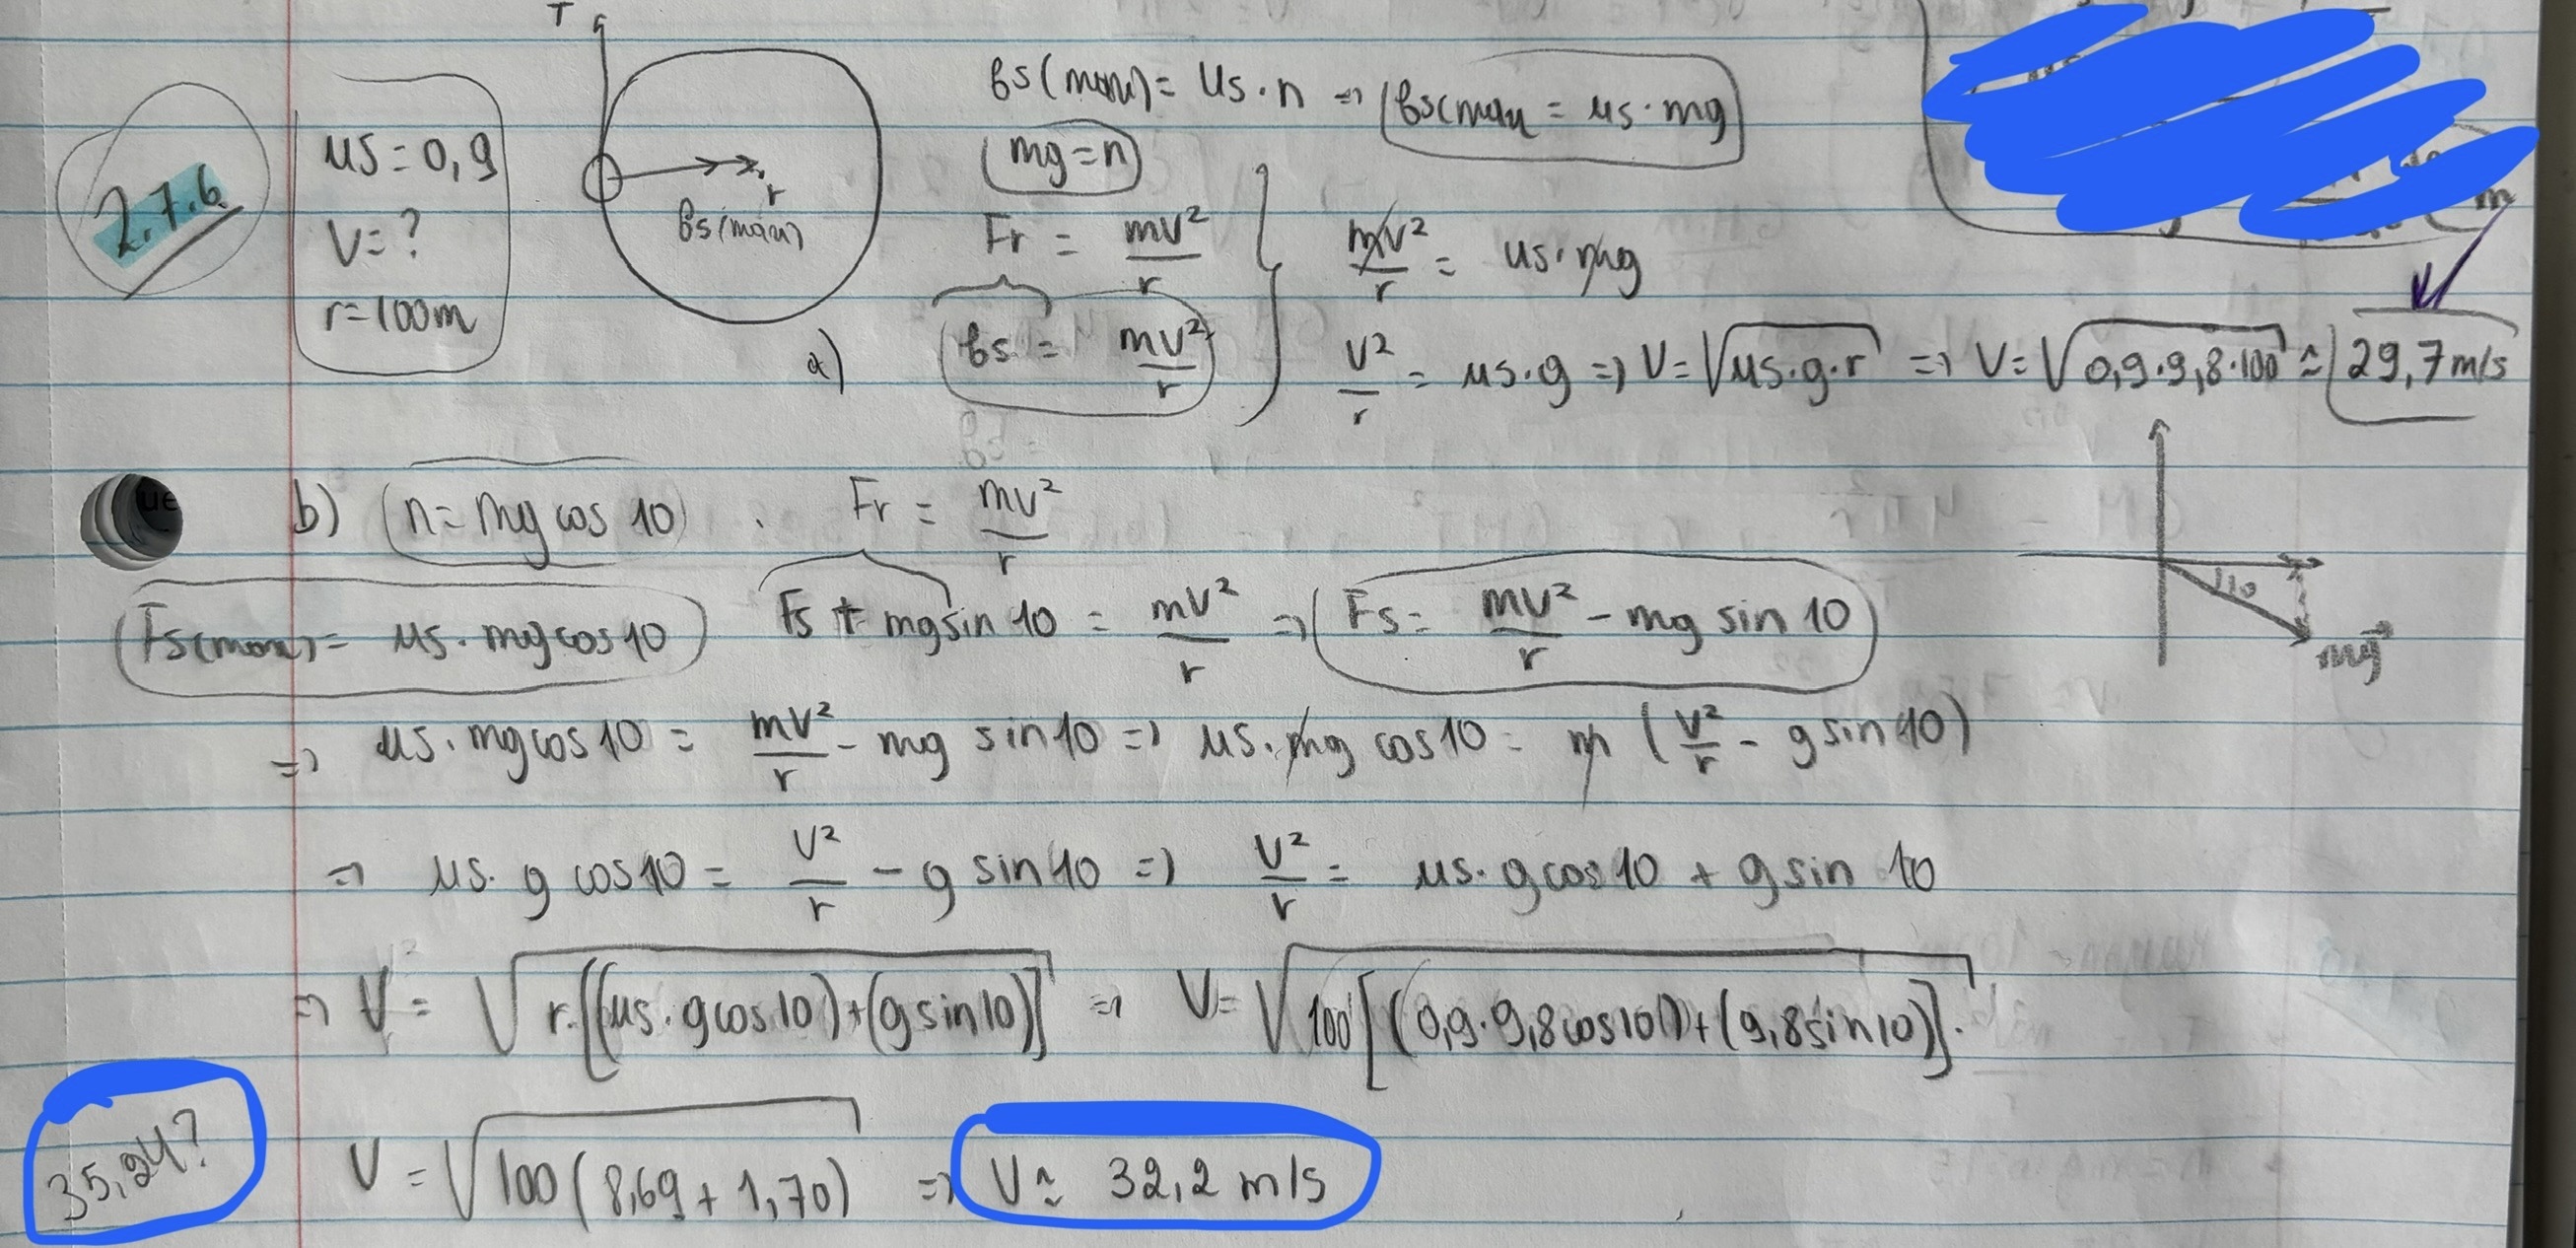 2.7.6
μs = 0,9
V = ?
r = 100m
r
fs(max)
fs(max) = μs · n => fs(max = μs · mg
mg = n
Fr = mv²/r
a) fs = mv²/r
mv²/r = μs · mg
v²/r = μs · g => V = √μs·g·r => V = √0,9·9,8·100 ≃ 29,7 m/s
b) n = mg cos 10 . Fr = mv²/r
Fs(max) = μs · mg cos 10 Fs + mg sin 10 = mv²/r => Fs = mv²/r - mg sin 10
10
mg
=> μs · mg cos 10 = mv²/r - mg sin 10 => μs · mg cos 10 = m (v²/r - g sin 10)
=> μs · g cos 10 = v²/r - g sin 10 => v²/r = μs · g cos 10 + g sin 10
=> V = √r·[(μs · g cos 10)+(g sin 10)] => V = √100[(0,9·9,8 cos 10)+(9,8 sin 10)].
35,24?
V = √100(8,69 + 1,70) => V ≃ 32,2 m/s